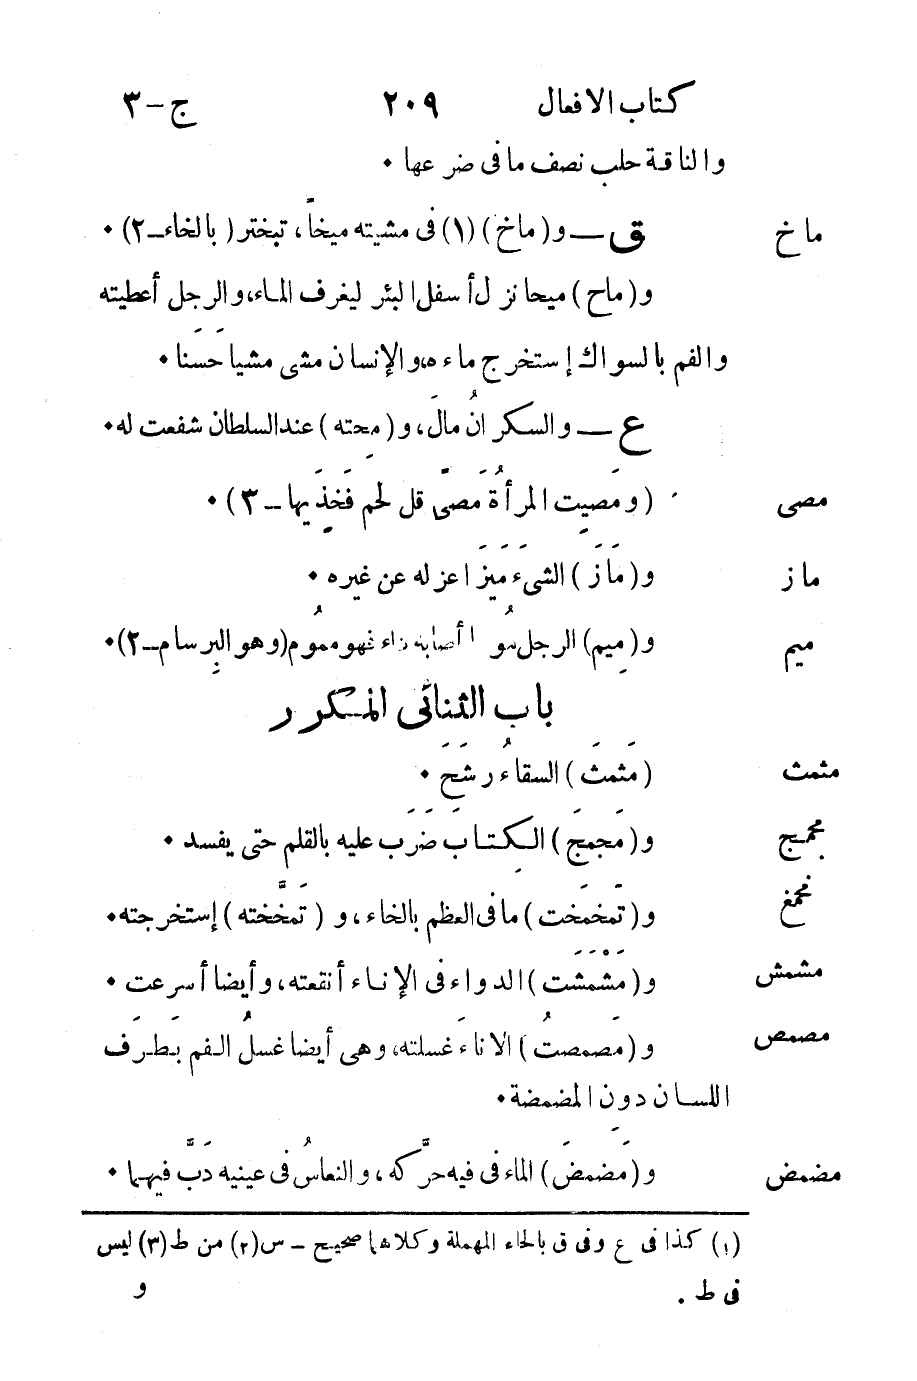 كتاب الافعال ٢٠٩ ج-٣
والناقة حلب نصف ما فى ضرعها ٠
ماخ ق — و (ماخ) (١) فى مشيته ميخاً، تبختر (بالخاء-٢) ٠
و (ماح) ميحا نزل أسفل البئر ليغرف الماء، والرجل أعطيته
والفم بالسواك إستخرج ماءه، والإنسان مشى مشياً حَسَنا ٠
ع — والسكرانُ مالَ، و (مِحته) عند السلطان شفعت له ٠
مصى (ومَصيِت المرأةُ مَصىً قل لحم فَخِذَيها - ٣) ٠
ماز و (مَازَ) الشىء مَيَزَ اعزله عن غيره ٠
ميم و (مِيم) الرجل أصابه داء فهو مموُم (وهو البِرسام-٢) ٠
باب الثنائى المكرر
مثمث (مَثمثَ) السقاءُ رشَحَ ٠
مجمج و (مَجمِجَ) الكتابَ ضرَب عليه بالقلم حتى يفسد ٠
مخمخ و (تمَخمَخت) ما فى العظم بالخاء، و (تمَخَّخته) إستخرجته ٠
مشمش و (مَشْمَشَت) الدواء فى الإناء أنقعته، وأيضا أسرعت ٠
مصمص و (مَصمصتُ) الاناءَ غسلته، وهى أيضا غسلُ الفم بَطرَف
اللسان دون المضمضة ٠
مضمض و (مَضمضَ) الماءَ فى فيه حرَّكه، والنعاسُ فى عينيه دَبَّ فيهما ٠
(١) كذا فى ع وفى ق بالحاء المهملة وكلاهما صحيح - س (٢) من ط (٣) ليس
فى ط .
و